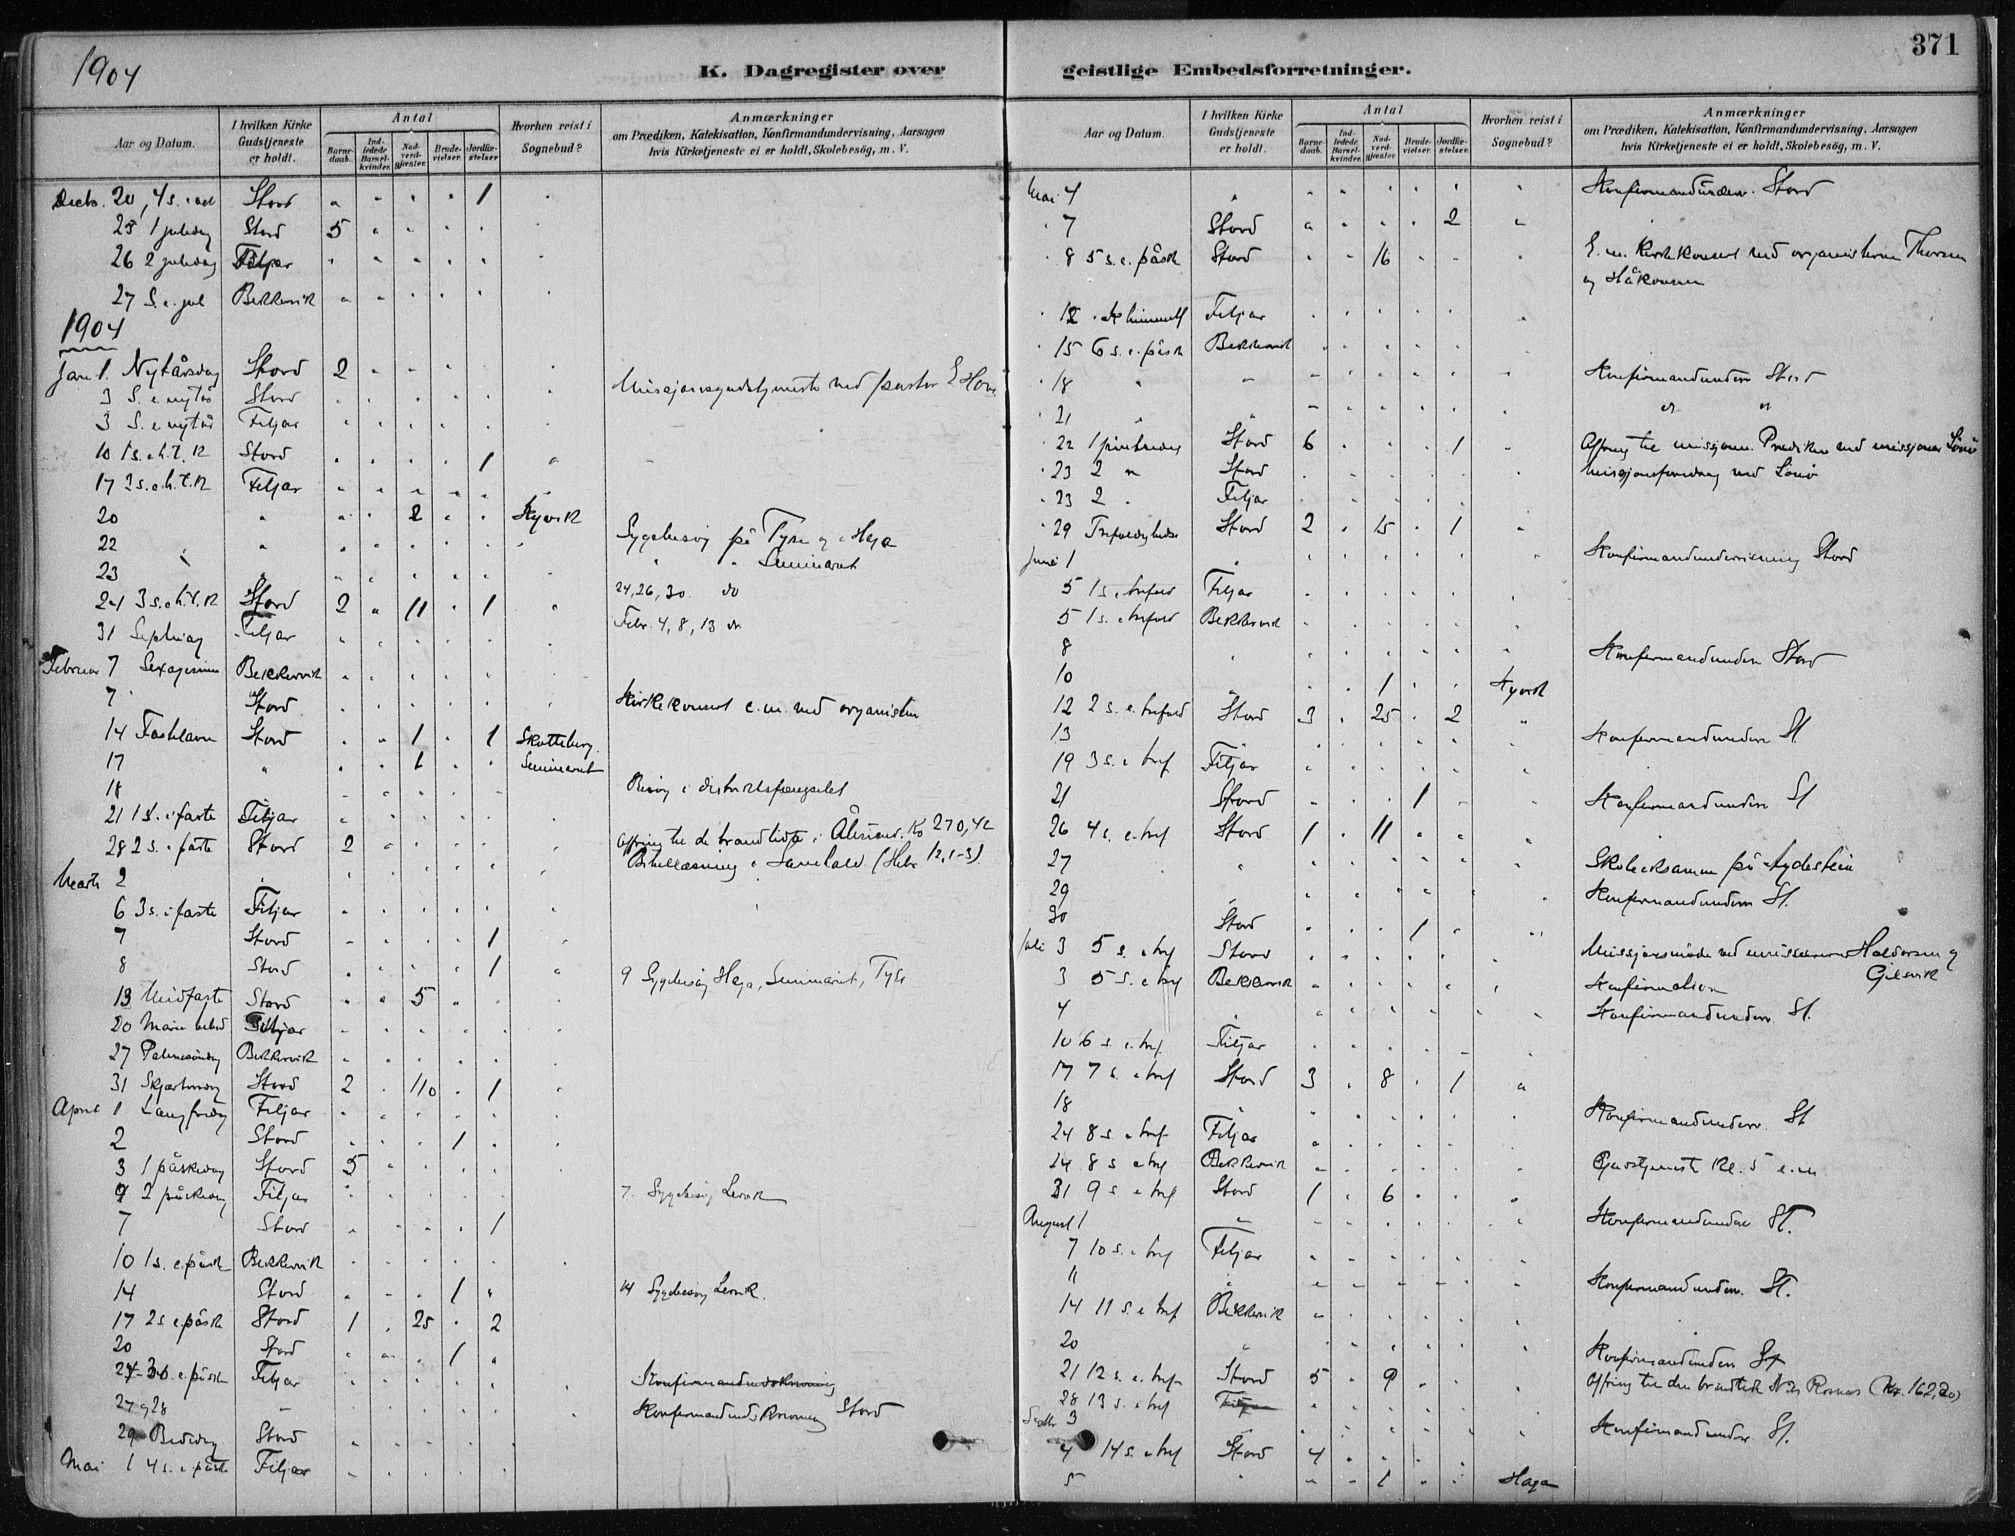 1904
371
K. Dagregister over geistlige Embedsforretninger.
Aar og Datum. I hvilken Kirke Gudstjeneste er holdt. Antal Barnedaab. Indledede Barselkvinder. Nadverdgjester. Brudevielser. Jordfæstelser. Hvorhen reist i Sognebud? Anmærkninger om Prædiken, Katekisation, Konfirmandundervisning, Aarsagen hvis Kirketjeneste ei er holdt, Skolebesög, m. V.
Decbr. 20, 4 s. i ad Stord " " " " 1 "
25 1 juledag Stord 5 " " " " "
26 2 juledag Fitjar " " " " " "
27 S. e. jul Bekkervik " " " " "
1904
Jan. 1. Nytårsdag Stord 2 " " " "
Missjonsgudstjeneste ved pastor E.
3 S. e nytår Stord " " " " " "
3 S. e nytår Fitjar " " " " "
10 1 s. e h. t. k Stord " " " " 1 "
17 2 s. e. h. t. k Fitjar " " " " " "
20 " " " 2 " " Kyvik
22 " " " " " " " Sygebesøg på Tyse og i Haga
23 " " " " " " " " Seminaret
24 3 s. e h. t. k Stord 2 " 11 " 1 " 24, 26, 30 do
31 Septuag Fitjar " " " " " Febr. 4, 8, 13 do
Februar 7 Sexagesima Bekkervik " " " " "
7 " Stord " " " " " " Kirkekonsert e. m. ved organisten
14 Fastelavn Stord " " 1 " 1 Skotteberg.
17 " " " 1 " " Seminaret
18 " " " " " Besøg i distriktsfængselet
21 1 s. i faste Fitjar " " " " "
28 2 s. i faste Stord 2 " " " " Offring til de brandlidte i Ålesund. Kr 270,42
Marts 2 " " " " " " " Bibellæsning i (Hebr 12, 1-3)
6 3 s. i faste Fitjar " " " " "
7 Stord " " " " 1 "
8 Stord " " " " 1 " 9 Sygebesøg Haga, Seminaret, Tyse
13 Midfaste Stord " " 5 " "
20 Marie bebud Fitjar " " " " "
27 Palmesøndag Bekkervik " " " " "
31 Skjærtorsdag Stord 2 " 110 " 1 "
April 1 Langfredag Fitjar " " " " "
2 Stord " " " 1 " "
3 1 påskedag Stord 5 " " " "
4 2 påskedag Fitjar " " " " " 7. Sygebesøg Lervik
7 Stord " " " " 1
10 1 s. e. påsk Bekkervik " " " " " "
14 Stord " " " 1 " 14 Sygebesøg Lervik.
17 2 s e. påsk Stord 1 " 25 " 2
20 Stord " " " 1 "
24 3 s. e. påsk Fitjar " " " " " " Konfirmandundervisning
27 og 28 " " " " " " " Konfirmandundervisning Stord
29 Bededag Stord " " " " "
Mai 1 4 s. e påske Fitjar " " " " "
Aar og Datum. I hvilken Kirke Gudstjeneste er holdt. Antal Barnedaab. Indledede Barselkvinder. Nadverdgjester. Brudevielser. Jordfæstelser. Hvorhen reist i Sognebud? Anmærkninger om Prædiken, Katekisation, Konfirmandundervisning, Aarsagen hvis Kirketjeneste ei er holdt, Skolebesög, m. V.
Mai 4 " " " " " " " Konfirmandunderv. Stord
" 7 Stord " " " " 2 "
" 8 5 s. e. påsk Stord " " 16 " " " E. m. Kirkekonsert ved organisterne Thorsen
og Håkonsen
" 12 Kr himmelf Fitjar " " " " " "
" 15 6 s. e. påsk Bekkervik " " " " "
" 18 " " " " " " " " Konfirmandunderv Stord
" 21 " " " " " " " " " "
" 22 1 pintsedag Stord 6 " " " 1 " Offring til missjonen. Prædiken ved missjonær
" 23 2 " Stord " " " " " Missjonsforedrag ved
" 23 2 " Fitjar " " " " "
" 29 Trefoldighedss Stord 2 " 15 " 1 "
Juni 1 " " " " " " " Konfirmandundervisning Stord
5 1 s. e trefold Fitjar " " " " "
5 1 s. e trefold Bekkervik " " " " " "
8 " " " " " " " Konfirmandunderv Stord
10 " " " 1 " " Kyvik
12 2 s. e. trefold Stord 3 " 25 " 2 "
13 " " " " " " Konfirmandunderv St.
19 3 s. e tref Fitjar " " " " " "
21 Stord " " " 1 " " Konfirmandunderv St
26 4 s. e. tref Stord 1 " 11 " " "
27 " " " " " " " Skoleeksamen på Hydestein
29 " " " " " " " Konfirmandunderv St.
30 Stord " " " 1 " "
Juli 3 5 s. e tref Stord " " " " " " Missjonsmøde ved missionærerne Haldorsen og
Gilsvik
3 5 s. e tref Bekkervik " " " " " " Konfirmation
4 " " " " " " " Konfirmandunderv. St.
10 6 s. e tref Fitjar " " " " "
17 7 s. e tref Stord 3 " 8 " 1 "
18 " " " " " " Konfirmandunderv. St
24 8 s. e tref Fitjar " " " " "
24 8 s e tref Bekkervik " " " " " Gudstjeneste kl. 5 e. m
31 9 s. e tref Stord 1 " 6 " " "
August 1 " " " " " " " Konfirmandunderv St.
7 10 s. e tref Fitjar " " " " " "
11 " " " " " " " Konfirmandunderv. St.
14 11 s. e tref Bekkervik " " " " " "
20 " " " " " " " Konfirmandunderv St
21 12 s. e. tref Stord 5 " 9 " " " Offring til den brandlidte Nils (Kr. 162,20)
28 13 s. e tref Fitjar " " " " " "
Septbr 3 " " " " " " Konfirmandunderv St.
4 14 s. e tref Stord 4 " " " "
5 " " " 1 " " Haga